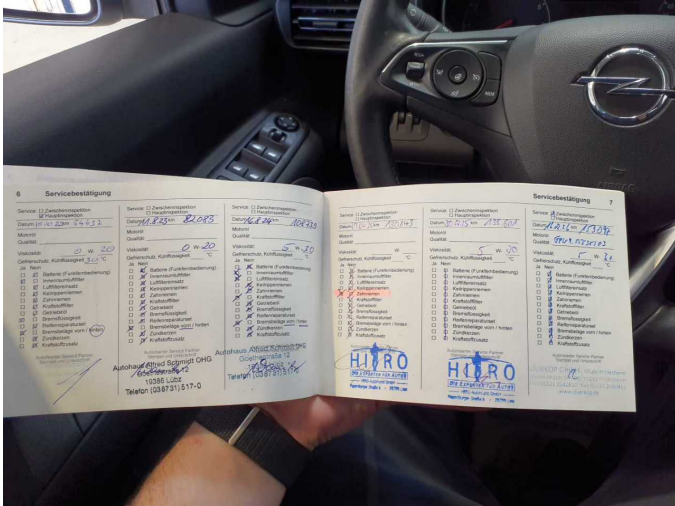 6 Servicebestätigung
Service: ☐ Zwischeninspektion
☒ Hauptinspektion
Datum km 54432
Motoröl
Qualität
Viskosität: 0 W- 20
Gefrierschutz, Kühlflüssigkeit °C
Ja Nein
Batterie (Funkfernbedienung)
Innenraumluftfilter
Luftfiltereinsatz
Keilrippenriemen
Zahnriemen
Kraftstofffilter
Getriebeöl
Bremsflüssigkeit
Reifenreparaturset
Bremsbeläge vorn / hinten
Zündkerzen
Kraftstoffzusatz
Autorisierter Service Partner
Stempel und Unterschrift
Service: ☐ Zwischeninspektion
Hauptinspektion
Datum 1.8.23 km 82083
Motoröl
Qualität
Viskosität: 0 W- 20
Gefrierschutz, Kühlflüssigkeit °C
Ja Nein
Batterie (Funkfernbedienung)
Innenraumluftfilter
Luftfiltereinsatz
Keilrippenriemen
Zahnriemen
Kraftstofffilter
Getriebeöl
Bremsflüssigkeit
Reifenreparaturset
Bremsbeläge vorn / hinten
Zündkerzen
Kraftstoffzusatz
Autohaus Alfred Schmidt OHG
Goethestraße 12
19386 Lübz
Telefon (038731) 517-0
Service: ☐ Zwischeninspektion
Hauptinspektion
Datum km
Motoröl
Qualität
Viskosität: 5 W- 30
Gefrierschutz, Kühlflüssigkeit °C
Ja Nein
Batterie (Funkfernbedienung)
Innenraumluftfilter
Luftfiltereinsatz
Keilrippenriemen
Zahnriemen
Kraftstofffilter
Getriebeöl
Bremsflüssigkeit
Reifenreparaturset
Bremsbeläge vorn / hinten
Zündkerzen
Kraftstoffzusatz
Autohaus Alfred Schmidt OHG
Goethestraße 12
Telefon (038731) 517-0
Servicebestätigung 7
Service: ☐ Zwischeninspektion
Hauptinspektion
Datum km
Motoröl
Qualität
Viskosität: W-
Gefrierschutz, Kühlflüssigkeit °C
Ja Nein
Batterie (Funkfernbedienung)
Innenraumluftfilter
Luftfiltereinsatz
Keilrippenriemen
Zahnriemen
Kraftstofffilter
Getriebeöl
Bremsflüssigkeit
Reifenreparaturset
Bremsbeläge vorn / hinten
Zündkerzen
Kraftstoffzusatz
HITRO
Service: ☐ Zwischeninspektion
Hauptinspektion
Datum km
Motoröl
Qualität
Viskosität: 5 W-
Gefrierschutz, Kühlflüssigkeit °C
Ja Nein
Batterie (Funkfernbedienung)
Innenraumluftfilter
Luftfiltereinsatz
Keilrippenriemen
Zahnriemen
Kraftstofffilter
Getriebeöl
Bremsflüssigkeit
Reifenreparaturset
Bremsbeläge vorn / hinten
Zündkerzen
Kraftstoffzusatz
HITRO
Service: Zwischeninspektion
Hauptinspektion
Datum km
Motoröl
Qualität
Viskosität: 5 W-
Gefrierschutz, Kühlflüssigkeit °C
Ja Nein
Batterie (Funkfernbedienung)
Innenraumluftfilter
Luftfiltereinsatz
Keilrippenriemen
Zahnriemen
Kraftstofffilter
Getriebeöl
Bremsflüssigkeit
Reifenreparaturset
Bremsbeläge vorn / hinten
Zündkerzen
Kraftstoffzusatz